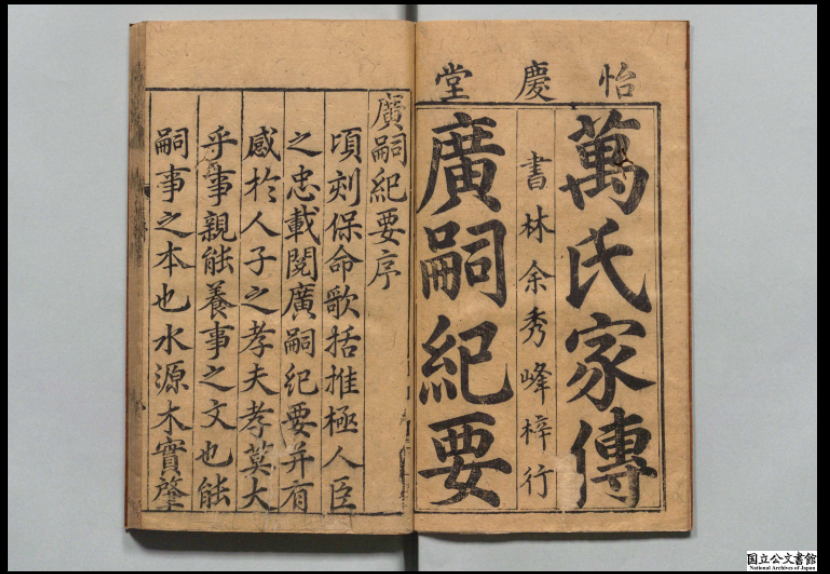 怡慶堂
萬氏家傳
書林余秀峰梓行
廣嗣紀要
廣嗣紀要序
頃刻保命歌括推極人臣
之忠載閱廣嗣紀要并有
感於人子之孝夫孝莫大
乎事親能養事之文也能
嗣事之本也水源木實聲
国立公文書館
National Archives of Japan